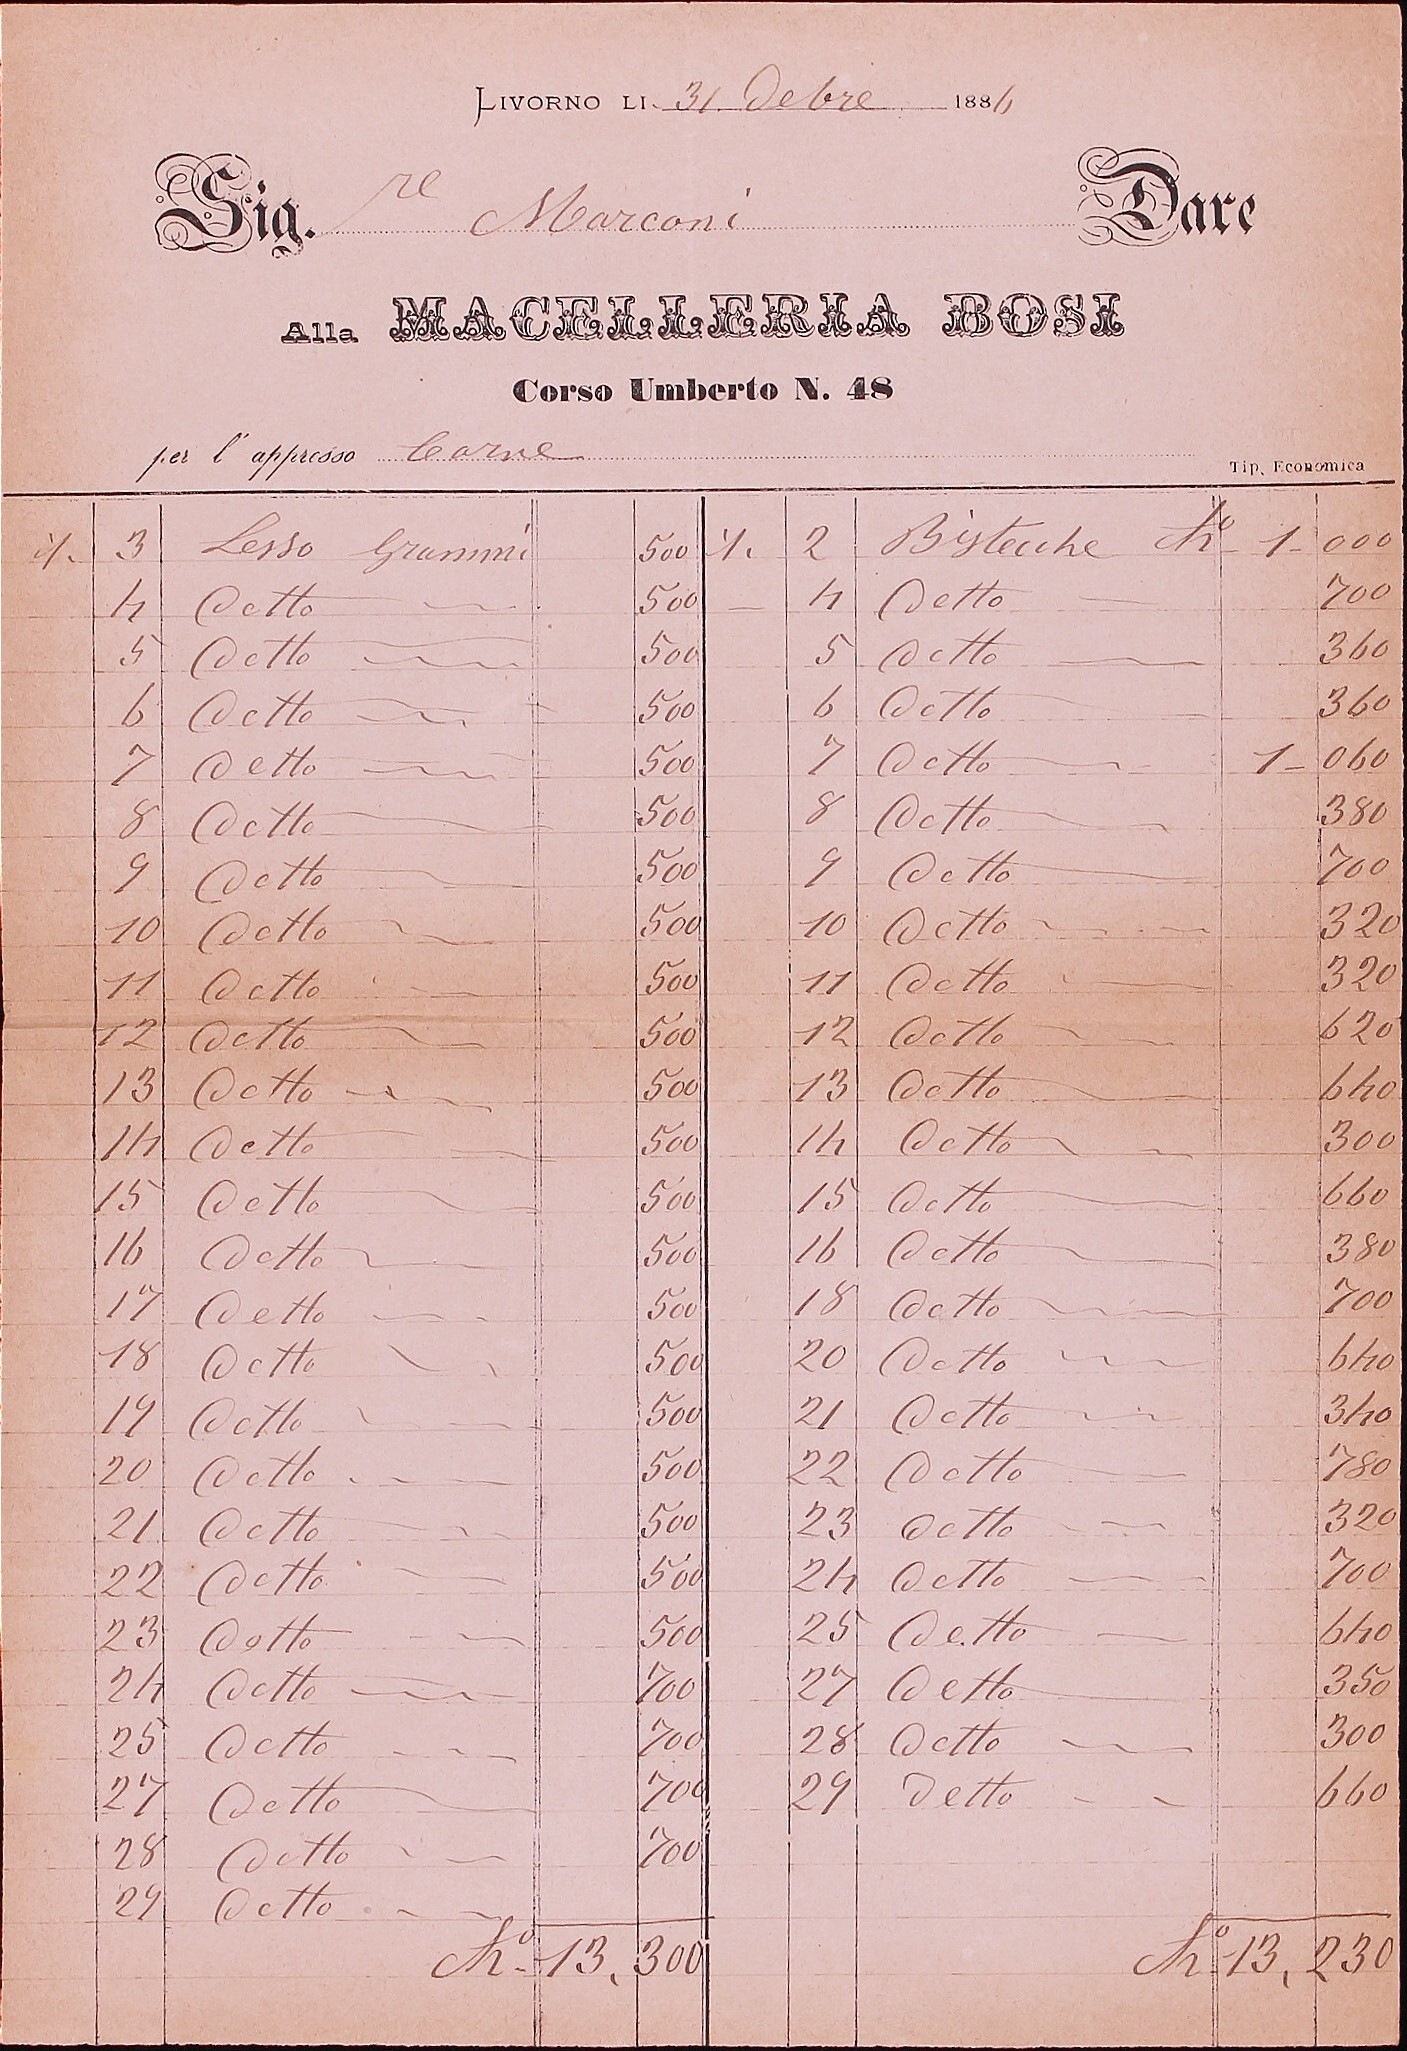 LIVORNO LI 31 Debre 1886
Sig.re Marconi Dare
Alla MACELLERIA BOSI
Corso Umberto N. 48
per l'appresso Carne
Tip. Economica
3 Lesso Grammi 500 2 Bistecche Ko 1 000
4 Detto 500 4 Detto 700
5 Detto 500 5 Detto 360
6 Detto 500 6 Detto 360
7 Detto 500 7 Detto 1 060
8 Detto 500 8 Detto 380
9 Detto 500 9 Detto 700
10 Detto 500 10 Detto 320
11 Detto 500 11 Detto 320
12 Detto 500 12 Detto 620
13 Detto 500 13 Detto 640
14 Detto 500 14 Detto 300
15 Detto 500 15 Detto 660
16 Detto 500 16 Detto 380
17 Detto 500 18 Detto 700
18 Detto 500 20 Detto 640
19 Detto 500 21 Detto 340
20 Detto 500 22 Detto 780
21 Detto 500 23 Detto 320
22 Detto 500 24 Detto 700
23 Detto 500 25 Detto 640
24 Detto 700 27 Detto 350
25 Detto 700 28 Detto 300
27 Detto 700 29 Detto 660
28 Detto 700
29 Detto
Ko 13,300 Ko 13,230